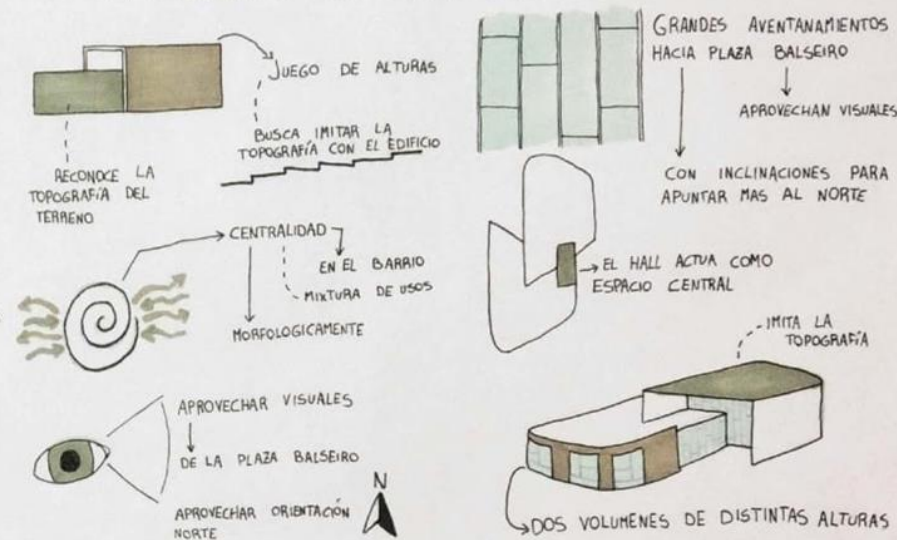 JUEGO DE ALTURAS
BUSCA IMITAR LA
TOPOGRAFÍA CON EL EDIFICIO
RECONOCE LA
TOPOGRAFÍA DEL
TERRENO
CENTRALIDAD
EN EL BARRIO
MIXTURA DE USOS
MORFOLOGICAMENTE
APROVECHAR VISUALES
DE LA PLAZA BALSEIRO
APROVECHAR ORIENTACIÓN
NORTE
N
GRANDES AVENTANAMIENTOS
HACIA PLAZA BALSEIRO
APROVECHAN VISUALES
CON INCLINACIONES PARA
APUNTAR MAS AL NORTE
EL HALL ACTUA COMO
ESPACIO CENTRAL
IMITA LA
TOPOGRAFÍA
DOS VOLUMENES DE DISTINTAS ALTURAS